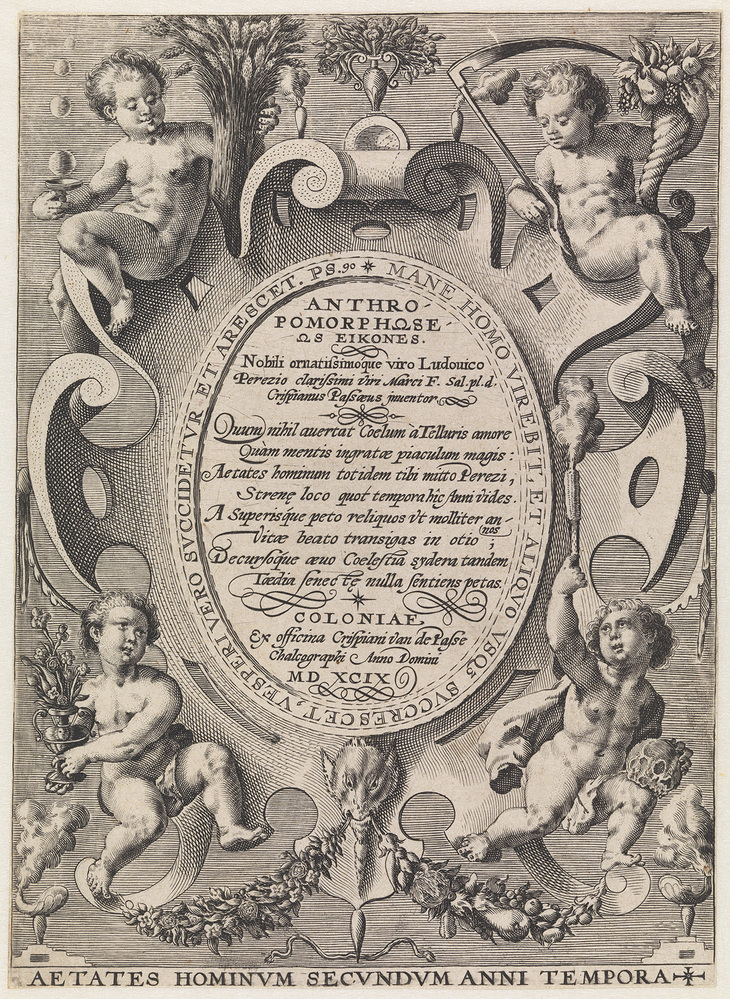 MANE HOMO VIREBIT, ET ALIQVO VSQꝫ SVCCRESCET, VESPERI VERO SVCCIDETVR ET ARESCET. PS.90
ANTHRO-
POMORPHΩSE-
ΩS EIKONES.
Nobili ornatissimoque viro Ludouico
Perezio clarissimi viri Marci F. Sal. pl. d.
Crispianus Passæus inuentor
Quum nihil auertat Coelum à Telluris amore
Quam mentis ingratæ piaculum magis:
Aetates hominum totidem tibi mitto Perezi,
Strenę loco quot tempora hic Anni vides.
A Superisque peto reliquos vt molliter an-
nos
Vitæ beato transigas in otio;
Decursoque æuo Coelestia sydera tandem
Tædia senectę nulla sentiens petas.
COLONIAE,
Ex officina Crispiani van de Passe
Chalcographi Anno Domini
MD XCIX
AETATES HOMINVM SECVNDVM ANNI TEMPORA